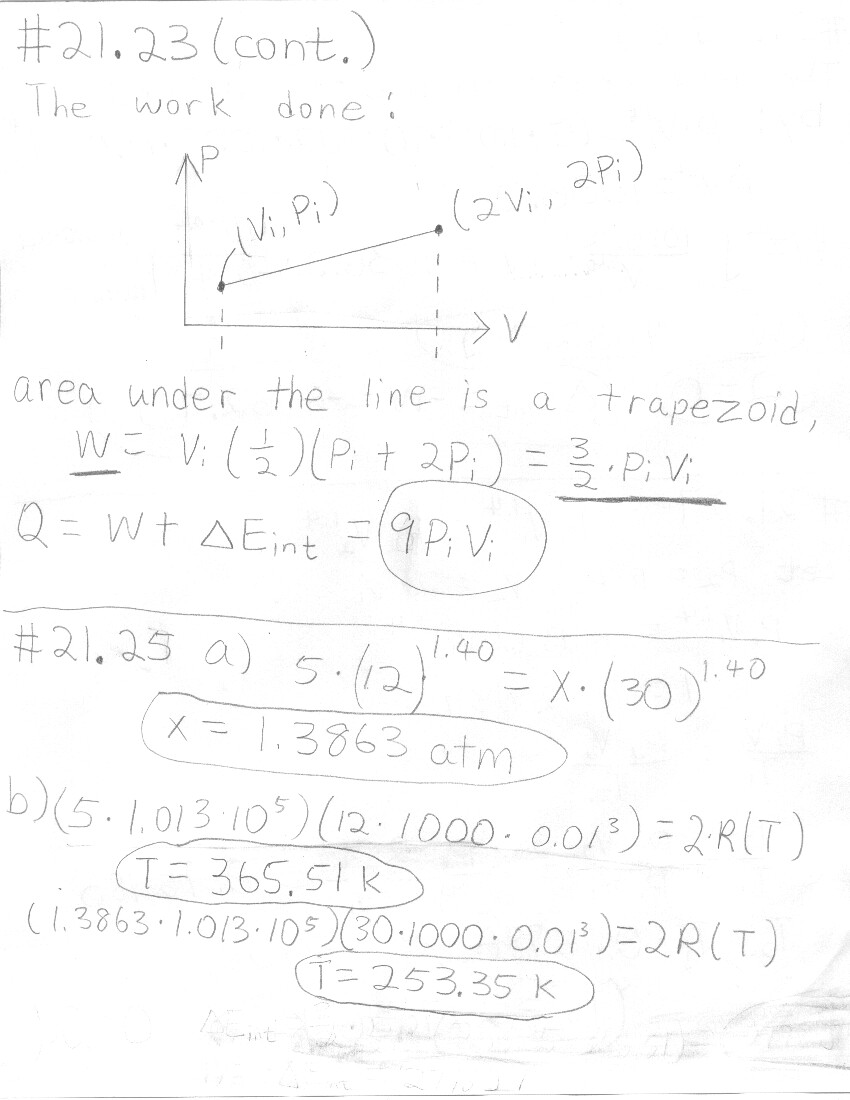 #21.23 (cont.)
The work done:
P
(Vi, Pi)
(2Vi, 2Pi)
V
area under the line is a trapezoid,
W = Vi (1/2)(Pi + 2Pi) = 3/2 · Pi Vi
Q = W + ΔEint = 9 Pi Vi
#21.25 a) 5·(12)^1.40 = X·(30)^1.40
X = 1.3863 atm
b) (5·1.013·10^5)(12·1000·0.01^3) = 2·R(T)
T = 365.51 K
(1.3863·1.013·10^5)(30·1000·0.01^3) = 2R(T)
T = 253.35 K